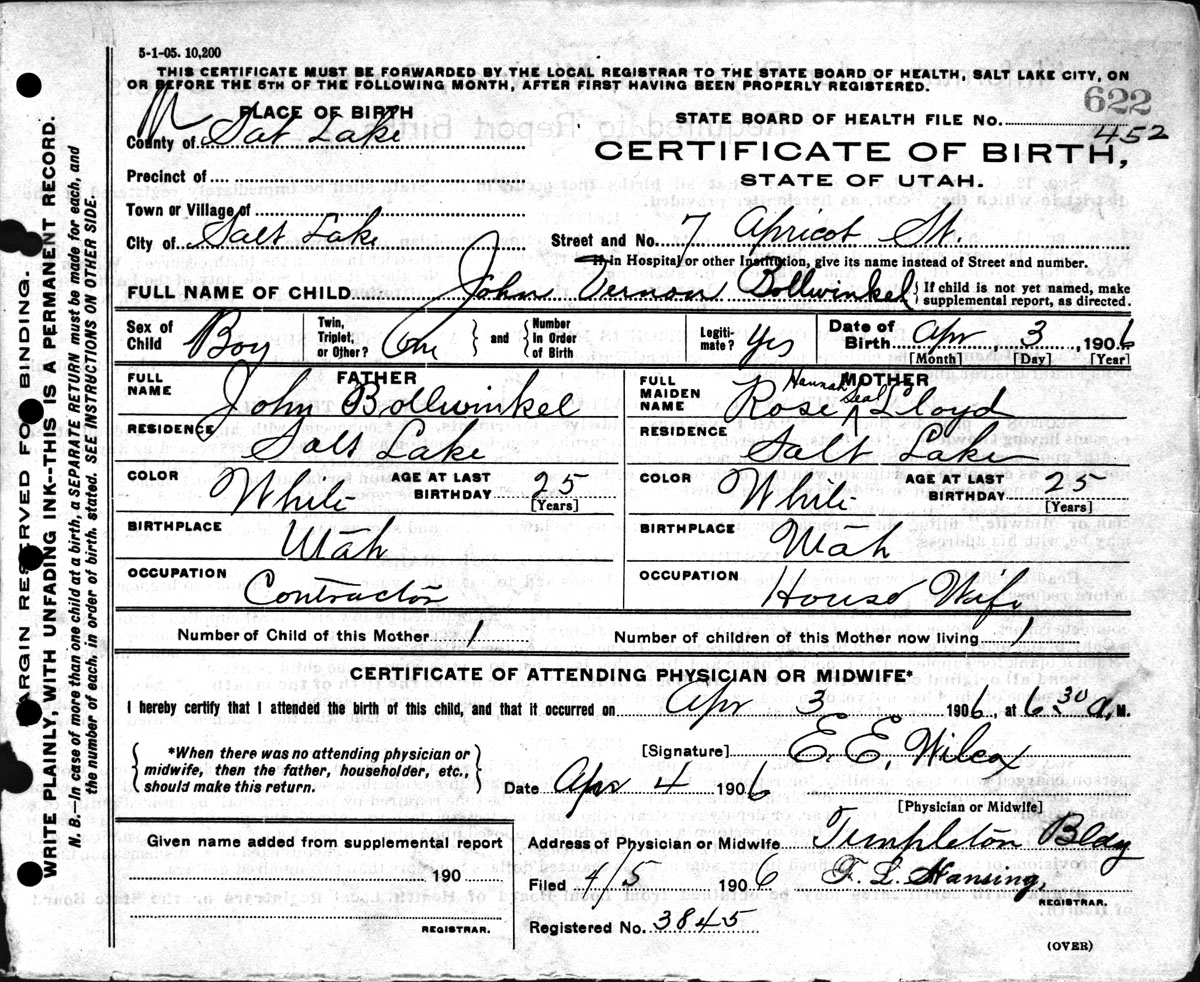 5-1-05. 10,200
THIS CERTIFICATE MUST BE FORWARDED BY THE LOCAL REGISTRAR TO THE STATE BOARD OF HEALTH, SALT LAKE CITY, ON
OR BEFORE THE 5TH OF THE FOLLOWING MONTH, AFTER FIRST HAVING BEEN PROPERLY REGISTERED.
622
PLACE OF BIRTH
STATE BOARD OF HEALTH FILE No. 452
County of Sat Lake
CERTIFICATE OF BIRTH,
Precinct of
STATE OF UTAH.
Town or Village of
City of Salt Lake
Street and No. 7 Apricot St.
If in Hospital or other Institution, give its name instead of Street and number.
FULL NAME OF CHILD John Vernon Bollwinkel { If child is not yet named, make supplemental report, as directed.
Sex of Child Boy Twin, Triplet, or Other? One } and { Number In Order of Birth Legiti- mate? Yes Date of Birth Apr 3, 1906
[Month] [Day] [Year]
FATHER
FULL NAME John Bollwinkel
RESIDENCE Salt Lake
COLOR White AGE AT LAST BIRTHDAY 25
[Years]
BIRTHPLACE Utah
OCCUPATION Contractor
MOTHER
FULL MAIDEN NAME Rose Hannah Seal Lloyd
RESIDENCE Salt Lake
COLOR White AGE AT LAST BIRTHDAY 25
[Years]
BIRTHPLACE Utah
OCCUPATION House Wife
Number of Child of this Mother 1 Number of children of this Mother now living 1
CERTIFICATE OF ATTENDING PHYSICIAN OR MIDWIFE*
I hereby certify that I attended the birth of this child, and that it occurred on Apr 3 1906, at 6 30 a. M.
{ *When there was no attending physician or
midwife, then the father, householder, etc.,
should make this return. }
[Signature] E. E. Wilcox
Date Apr 4 1906
[Physician or Midwife]
Address of Physician or Midwife Templeton Bldg
Filed 4/5 1906 T. L. Hansing,
REGISTRAR.
Registered No. 3845
Given name added from supplemental report
190
REGISTRAR.
(OVER)
MARGIN RESERVED FOR BINDING.
WRITE PLAINLY, WITH UNFADING INK--THIS IS A PERMANENT RECORD.
N. B.--In case of more than one child at a birth, a SEPARATE RETURN must be made for each, and
the number of each, in order of birth, stated. SEE INSTRUCTIONS ON OTHER SIDE.